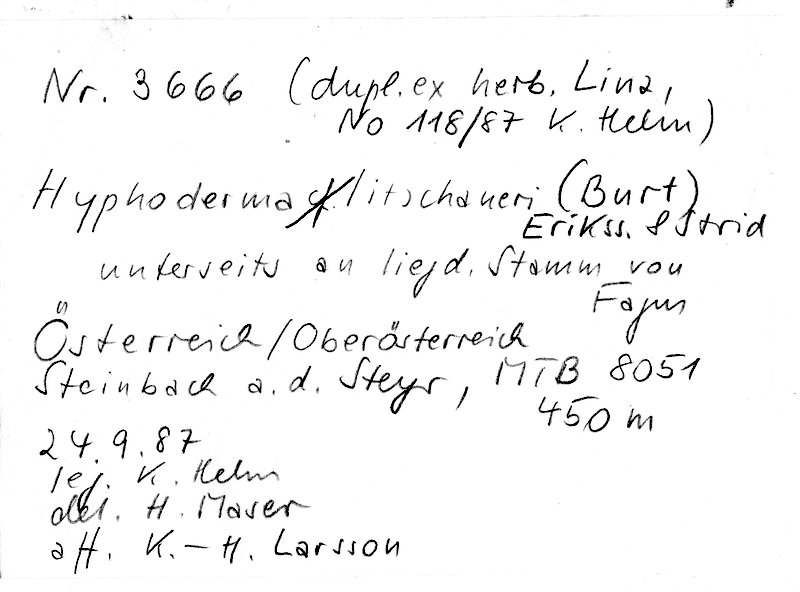 Nr. 3666 (dupl. ex herb. Linz,
No 118/87 K. Helm)
Hyphoderma litschaueri (Burt)
Erikss. & Strid
unterseits an liegd. Stamm von
Fagus
Österreich/Oberösterreich
Steinbach a. d. Steyr, MTB 8051
450 m
24.9.87
leg. K. Helm
det. H. Maser
aff. K.-H. Larsson